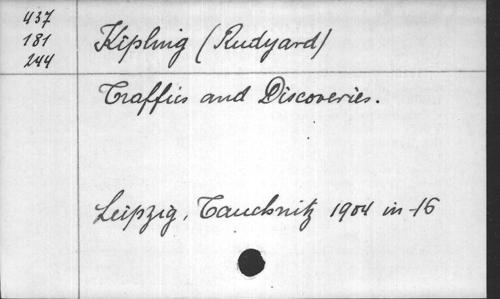 437
181
244
Kipling (Rudyard)
Traffics and Discoveries.
Leipzig, Tauchnitz 1904 in-16